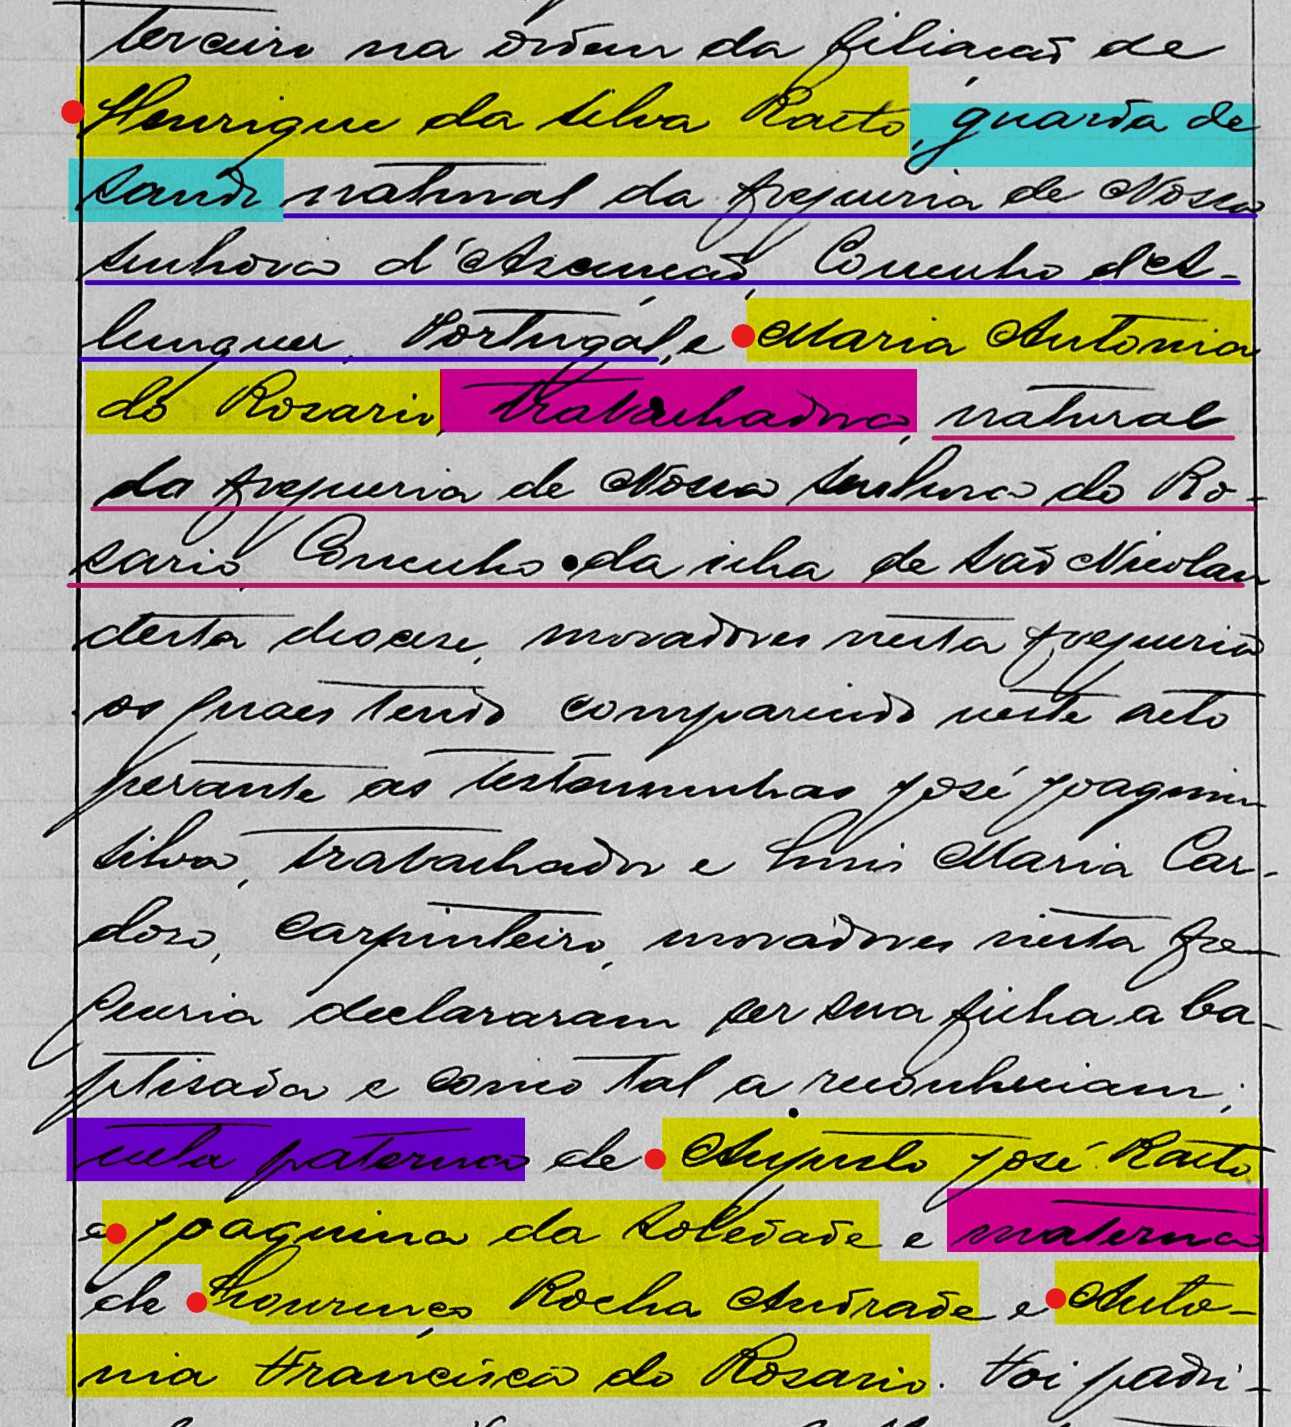 terceiro na ordem da filiação de
Henrique da Silva Raeto, guarda de
saude natural da freguesia de Nossa
Senhora d'Assunção, Concelho d'A-
lenquer, Portugal, e Maria Antonia
do Rosario, trabalhadora, natural
da freguesia de Nossa Senhora do Ro-
sario, Concelho da ilha de São Nicolau
desta diocese, moradores nesta freguesia
os quaes tendo comparecido neste acto
perante as testemunhas José Joaquim
Silva, trabalhador e Luis Maria Car-
doso, carpinteiro, moradores nesta fre-
guesia declararam ser sua filha a ba-
ptisada e como tal a reconheciam;
neta paterna de Augusto José Raeto
e Joaquina da Soledade e materna
de Lourenço Rocha Andrade e Anto-
nia Francisca do Rosario. Foi padri-